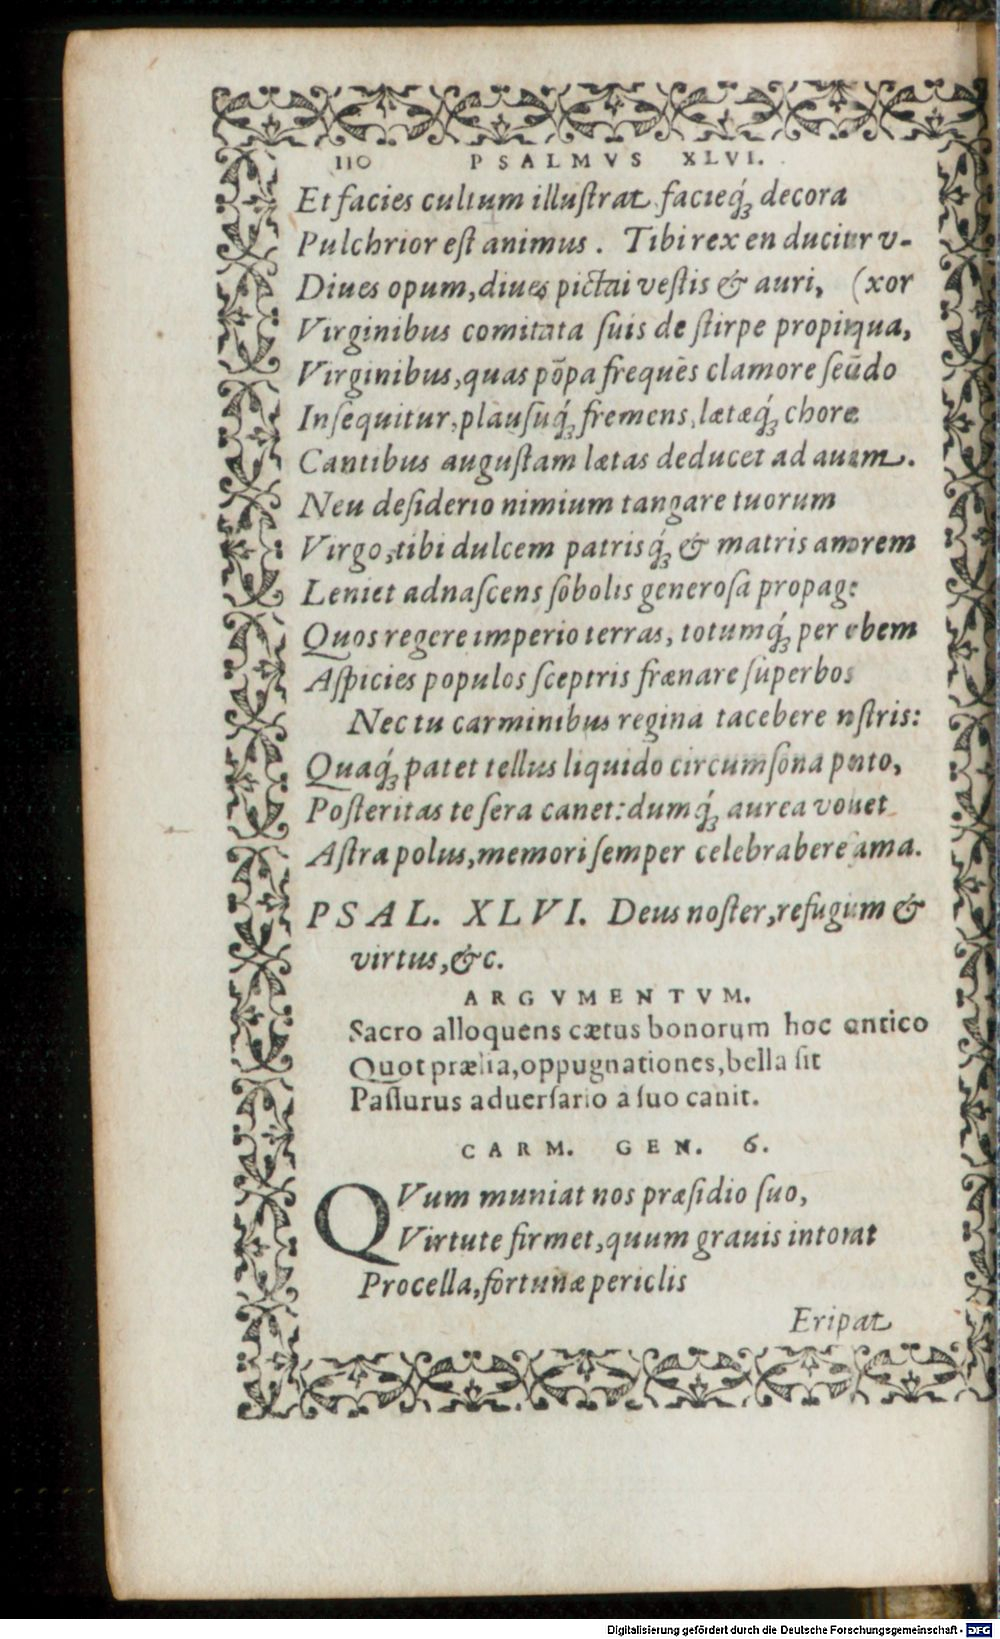 110 PSALMVS XLVI.
Et facies cultum illuſtrat facieq́ꝫ decora
Pulchrior eſt animus. Tibi rex en ducitur v-
Diues opum, diues pictai veſtis & auri, (xor
Virginibus comitata ſuis de ſtirpe propinqua,
Virginibus, quas põpa frequẽs clamore ſeũdo
Inſequitur, plauſuq́ꝫ fremens, lætæq́ꝫ choreæ
Cantibus auguſtam lætas deducet ad aulam.
Neu deſiderio nimium tangare tuorum
Virgo, tibi dulcem patrisq́ꝫ & matris amorem
Leniet adnaſcens ſobolis generoſa propago
Quos regere imperio terras, totumq́ꝫ per orbem
Aſpicies populos ſceptris frænare ſuperbos
Nec tu carminibus regina tacebere nſtris:
Quaq́ꝫ patet tellus liquido circumſona ponto,
Poſteritas te ſera canet: dumq́ꝫ aurea voluet
Aſtra polus, memori ſemper celebrabere fama.
PSAL. XLVI. Deus noſter, refugium &
virtus, &c.
ARGVMENTVM.
Sacro alloquens cætus bonorum hoc cantico
Quot prælia, oppugnationes, bella ſit
Paſſurus aduerſario a ſuo canit.
CARM. GEN. 6.
QVum muniat nos præſidio ſuo,
Virtute firmet, quum grauis intonat
Procella, fortunæ periclis
Eripat
Digitalisierung gefördert durch die Deutsche Forschungsgemeinschaft - DFG